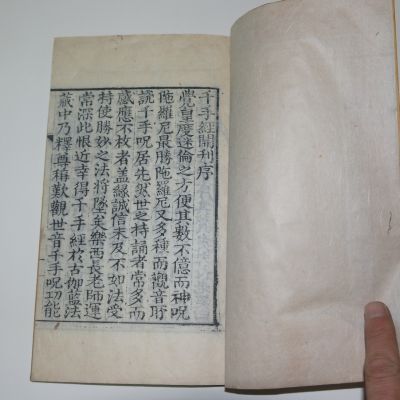 千手經開刋序
覺皇度迷倫之方便其數不億而神呪
陁羅尼最勝陁羅尼又多種而觀音所
說千手呪居先然世之持誦者常多而
感應不較者盖緣誠信未及不如法受
持使勝妙之法將墜矣樂西長老師運
常深此恨近幸得千手經於古伽藍法
藏中乃釋尊稱歎觀世音千手呪功能